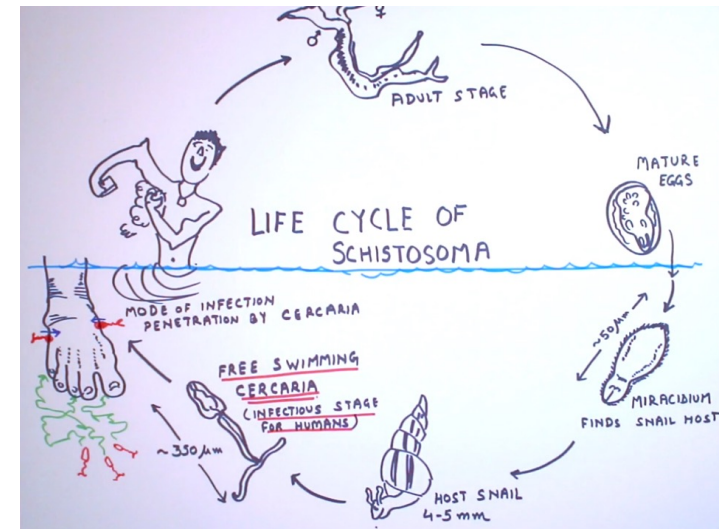 ♂ ♀
ADULT STAGE
MATURE
EGGS
LIFE CYCLE OF
SCHISTOSOMA
MODE OF INFECTION
PENETRATION BY CERCARIA
~50µm
MIRACIDIUM
FINDS SNAIL HOST
FREE SWIMMING
CERCARIA
(INFECTIOUS STAGE
FOR HUMANS)
~350µm
HOST SNAIL
4-5mm